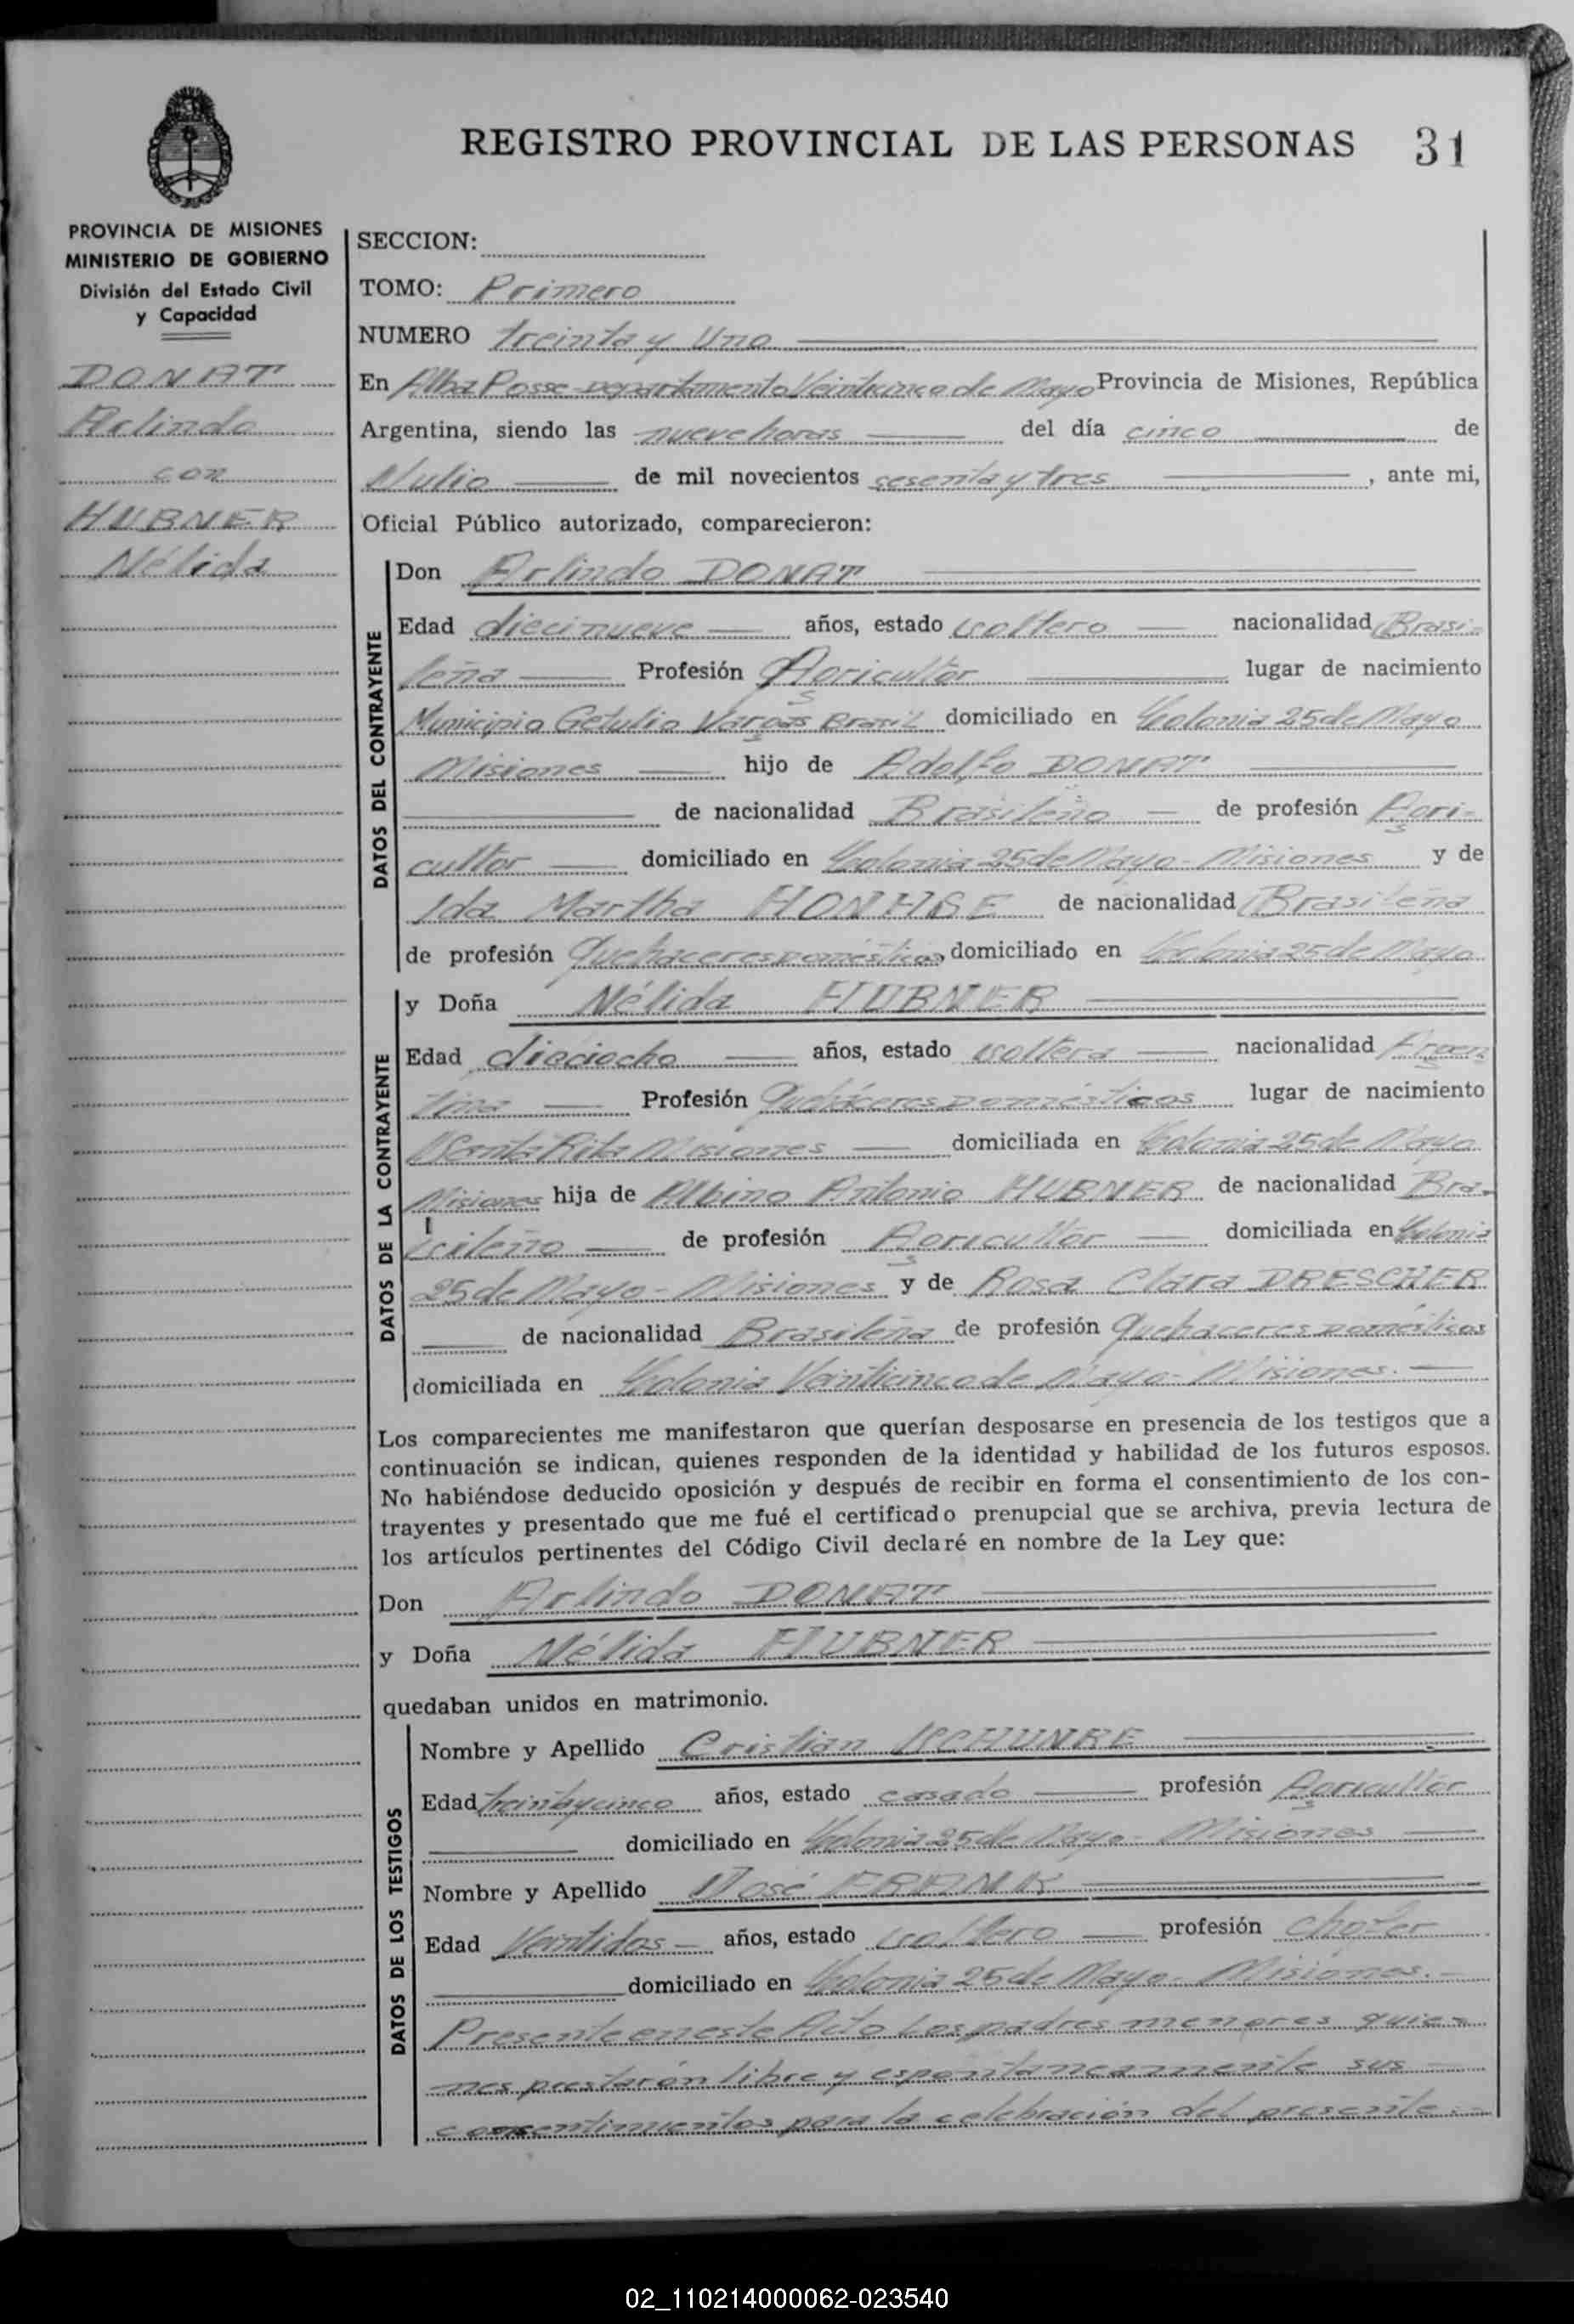 REGISTRO PROVINCIAL DE LAS PERSONAS 31
PROVINCIA DE MISIONES
MINISTERIO DE GOBIERNO
División del Estado Civil
y Capacidad
DONAT
Arlindo
con
HUBNER
Nélida
SECCION:
TOMO: Primero
NUMERO treinta y Uno
En Alba Posse Departamento Veinticinco de Mayo Provincia de Misiones, República
Argentina, siendo las nueve horas del día cinco de
Julio de mil novecientos sesenta y tres, ante mi,
Oficial Público autorizado, comparecieron:
DATOS DEL CONTRAYENTE
Don Arlindo DONAT
Edad diecinueve años, estado soltero nacionalidad Brasi-
leña Profesión Agricultor lugar de nacimiento
Municipio Getulio Vargas Brasil domiciliado en Colonia 25 de Mayo
Misiones hijo de Adolfo DONAT
de nacionalidad Brasileño de profesión Agri-
cultor domiciliado en Colonia 25 de Mayo - Misiones y de
Ida Martha de nacionalidad Brasileña
de profesión Quehaceres Domésticos domiciliado en Colonia 25 de Mayo
DATOS DE LA CONTRAYENTE
y Doña Nélida HUBNER
Edad dieciocho años, estado soltera nacionalidad Argen
tina Profesión Quehaceres Domésticos lugar de nacimiento
Santa Rita Misiones domiciliada en Colonia 25 de Mayo
Misiones hija de Albino Antonio HUBNER de nacionalidad Bra-
sileño de profesión Agricultor domiciliada en Colonia
25 de Mayo - Misiones y de Rosa Clara DRESCHER
de nacionalidad Brasileña de profesión Quehaceres Domésticos
domiciliada en Colonia Veinticinco de Mayo - Misiones.
Los comparecientes me manifestaron que querían desposarse en presencia de los testigos que a
continuación se indican, quienes responden de la identidad y habilidad de los futuros esposos.
No habiéndose deducido oposición y después de recibir en forma el consentimiento de los con-
trayentes y presentado que me fué el certificado prenupcial que se archiva, previa lectura de
los artículos pertinentes del Código Civil declaré en nombre de la Ley que:
Don Arlindo DONAT
y Doña Nélida HUBNER
quedaban unidos en matrimonio.
DATOS DE LOS TESTIGOS
Nombre y Apellido Cristian SCHUNKE
Edad treintaycinco años, estado casado profesión Agricultor
domiciliado en Colonia 25 de Mayo - Misiones
Nombre y Apellido José FRANK
Edad Veintidos años, estado soltero profesión Chofer
domiciliado en Colonia 25 de Mayo - Misiones.
Presente en este Acto Los padres menores quie-
nes prestarón libre y espontaneamente sus
consentimientos para la celebración del presente.-
02_110214000062-023540